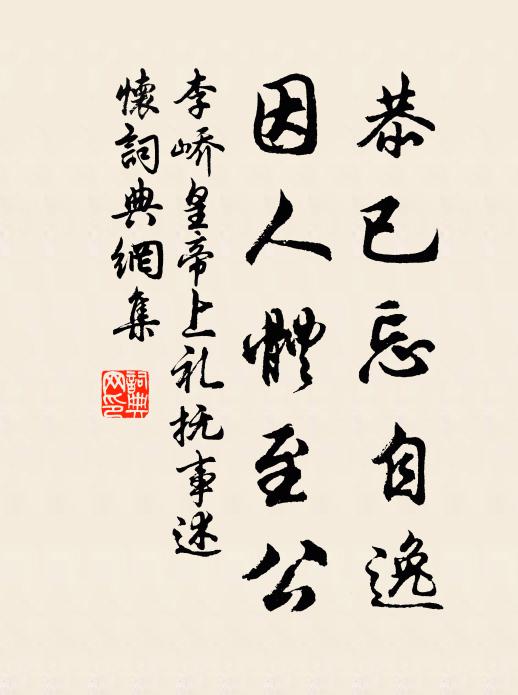 恭已忘自逸
因人體至公
李嶠皇帝上礼抚事述
懷詞典網集
詞典網印